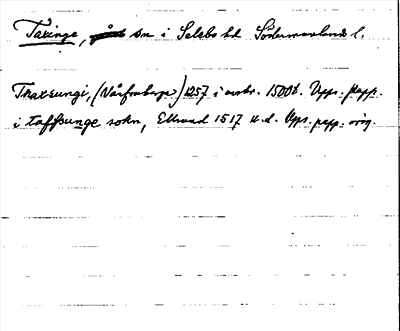 Taxinge, sn i Selebo hd Södermanlands l.
Thaxsungi, (Vårfruberga) 1257 i avskr. 1500 t. Upps. papp.
i taffsunge sokn, Ellsund 1517 u.d. Upps. papp. orig.